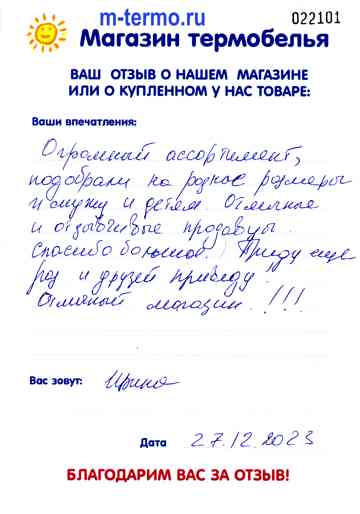 m-termo.ru
022101
Магазин термобелья
ВАШ ОТЗЫВ О НАШЕМ МАГАЗИНЕ
ИЛИ О КУПЛЕННОМ У НАС ТОВАРЕ:
Ваши впечатления:
Огромный ассортимент,
подобрали на разные размеры
и мужу и детям. Отличные
и отзывчивые продавцы.
Спасибо большое. Приду еще
раз и друзей приведу.
Отличный магазин!!!
Вас зовут: Ирина
Дата 27.12.2023
БЛАГОДАРИМ ВАС ЗА ОТЗЫВ!